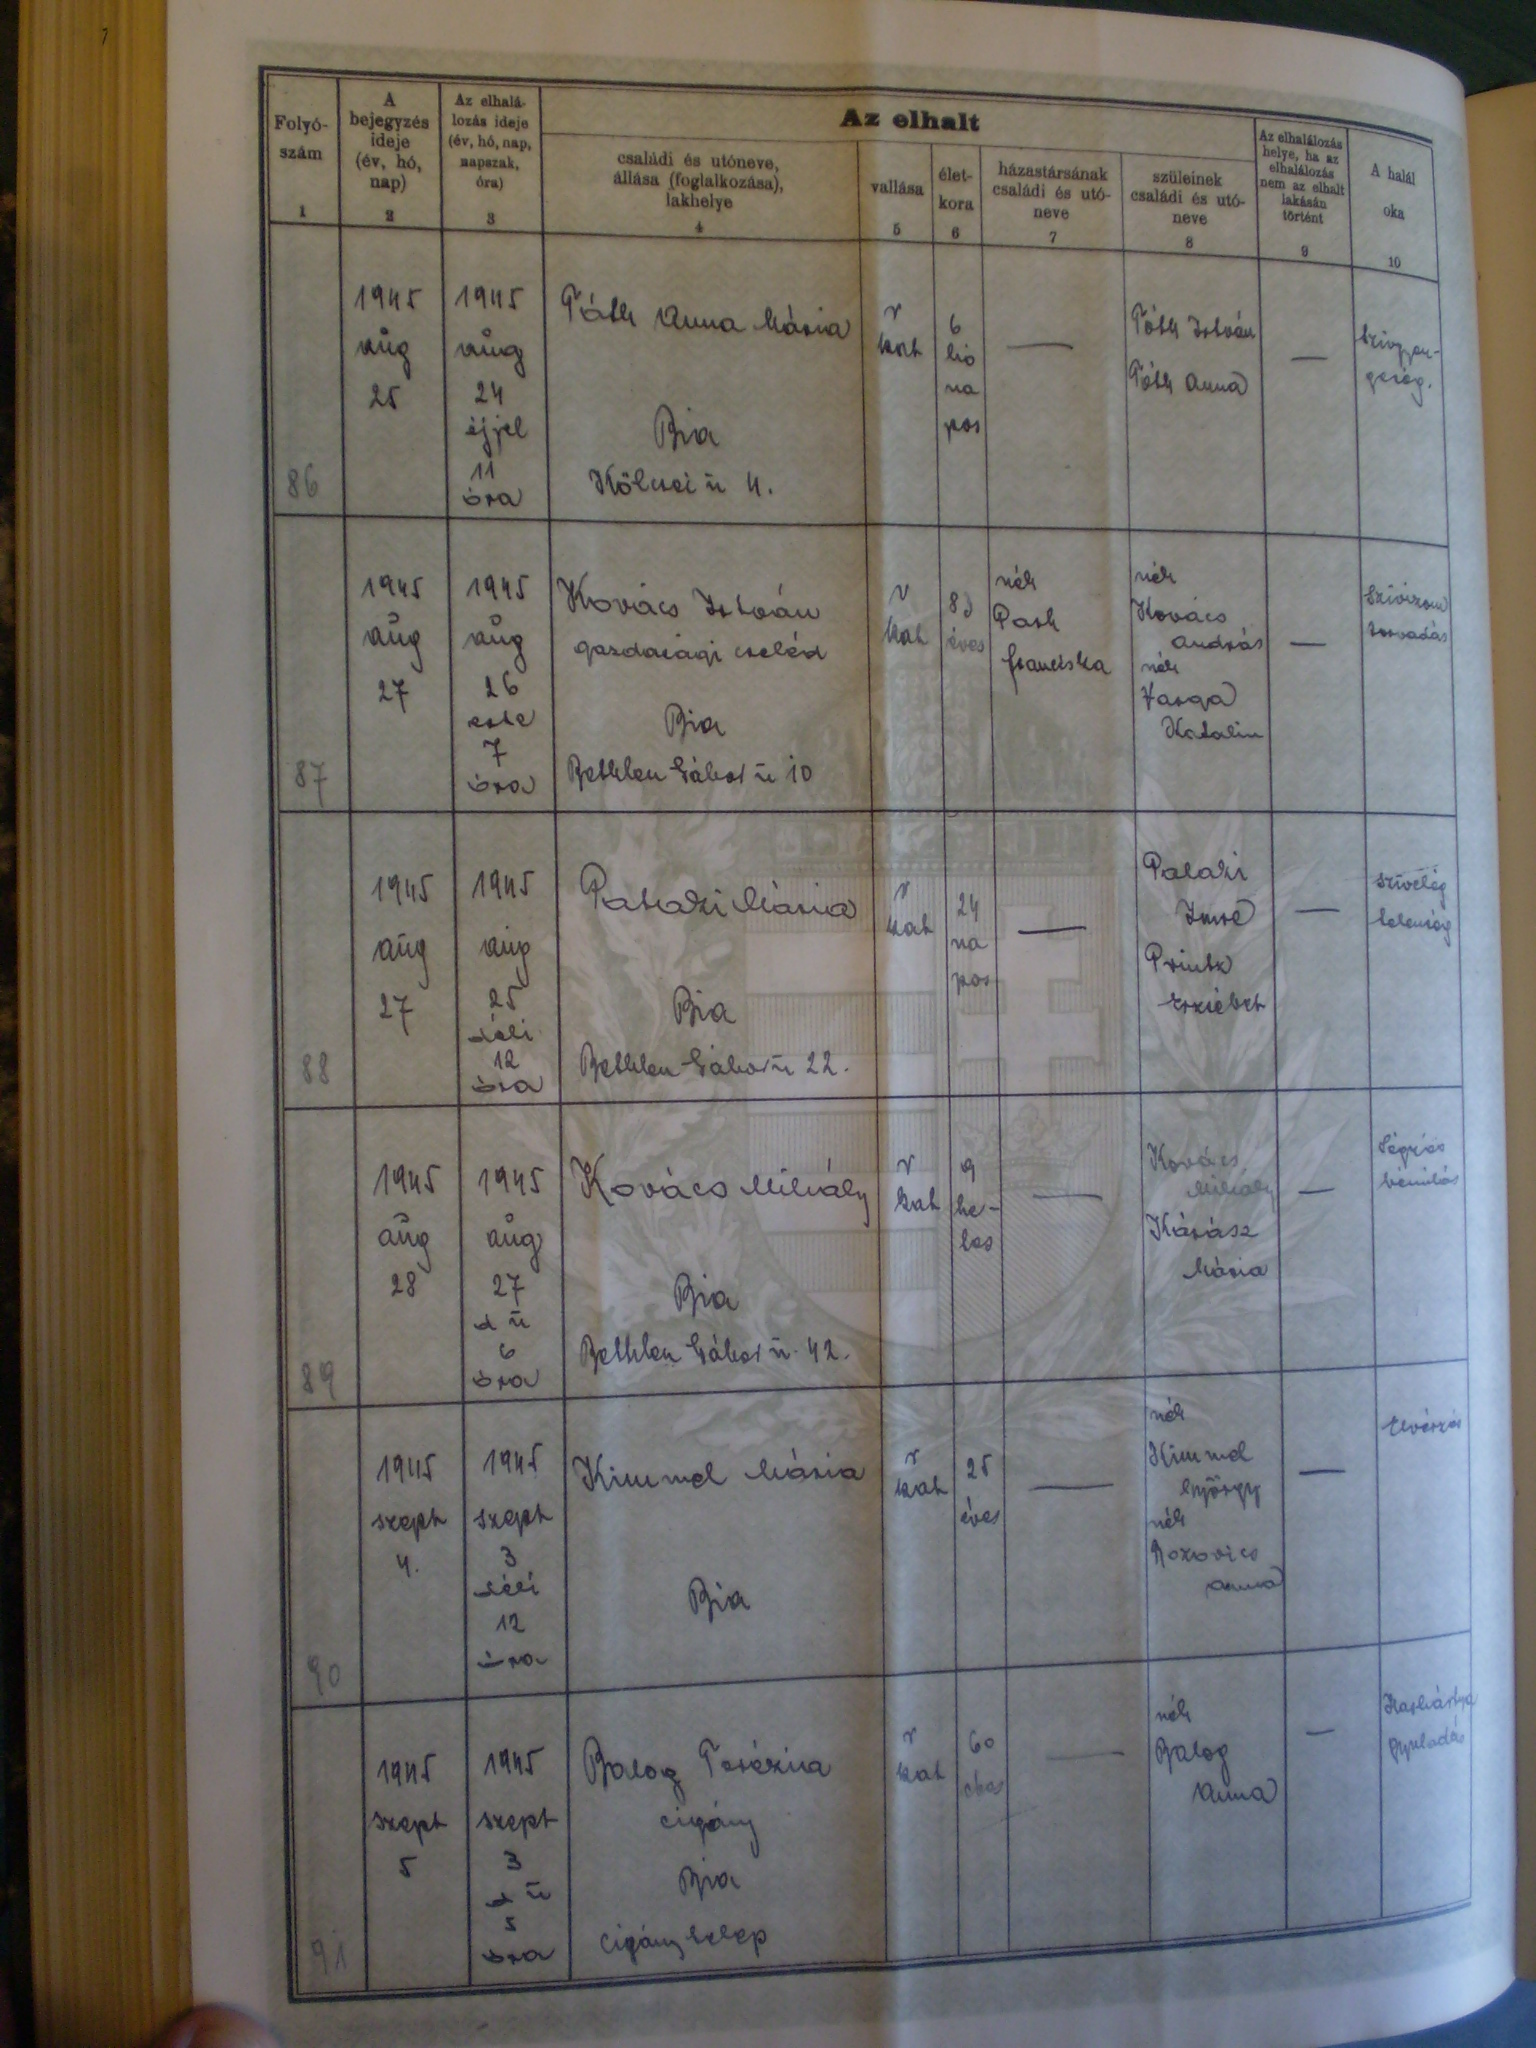 Az elhalt
Folyó-
szám
1
A
bejegyzés
ideje
(év, hó,
nap)
2
Az elhalá-
lozás ideje
(év, hó, nap,
napszak,
óra)
3
családi és utóneve,
állása (foglalkozása),
lakhelye
4
vallása
5
élet-
kora
6
házastársának
családi és utó-
neve
7
szüleinek
családi és utó-
neve
8
Az elhalálozás
helye, ha az
elhalálozás
nem az elhalt
lakásán
történt
9
A halál
oka
10
86
1945
aug
25
1945
aug
24
éjjel
11
óra
Tóth Anna Mária
Bia
Kölcsei u 4.
r
kat
6
hó
na
pos
—
Tóth István
Tóth Anna
—
szívgyen-
geség.
87
1945
aug
27
1945
aug
26
este
7
óra
Kovács István
gazdasági cseléd
Bia
Bethlen Gábor u 10
r
kat
éves
néh
franciska
néh
Kovács
András
néh
Varga
Katalin
—
88
1945
aug
27
1945
aug
25
déli
12
óra
Pataki Mária
Bia
Bethlen Gábor u 22.
r
kat
24
na
pos
—
Pataki
Imre
Printz
Erzsébet
—
szívelég
telenség
89
1945
aug
28
1945
aug
27
d u
6
óra
Kovács Mihály
Bia
Bethlen Gábor u. 42.
r
kat
9
he-
tes
—
Kovács
Mihály
Kárász
Mária
—
bénulás
90
1945
szept
4.
1945
szept
3
déli
12
óra
Kimmel Mária
Bia
r
kat
25
éves
—
néh
Kimmel
György
néh
Anna
—
elvérzés
91
1945
szept
5
1945
szept
3
d u
5
óra
Balog Terézia
cigány
Bia
cigánytelep
r
kat
60
—
néh
Balog
Anna
—
gyuladás